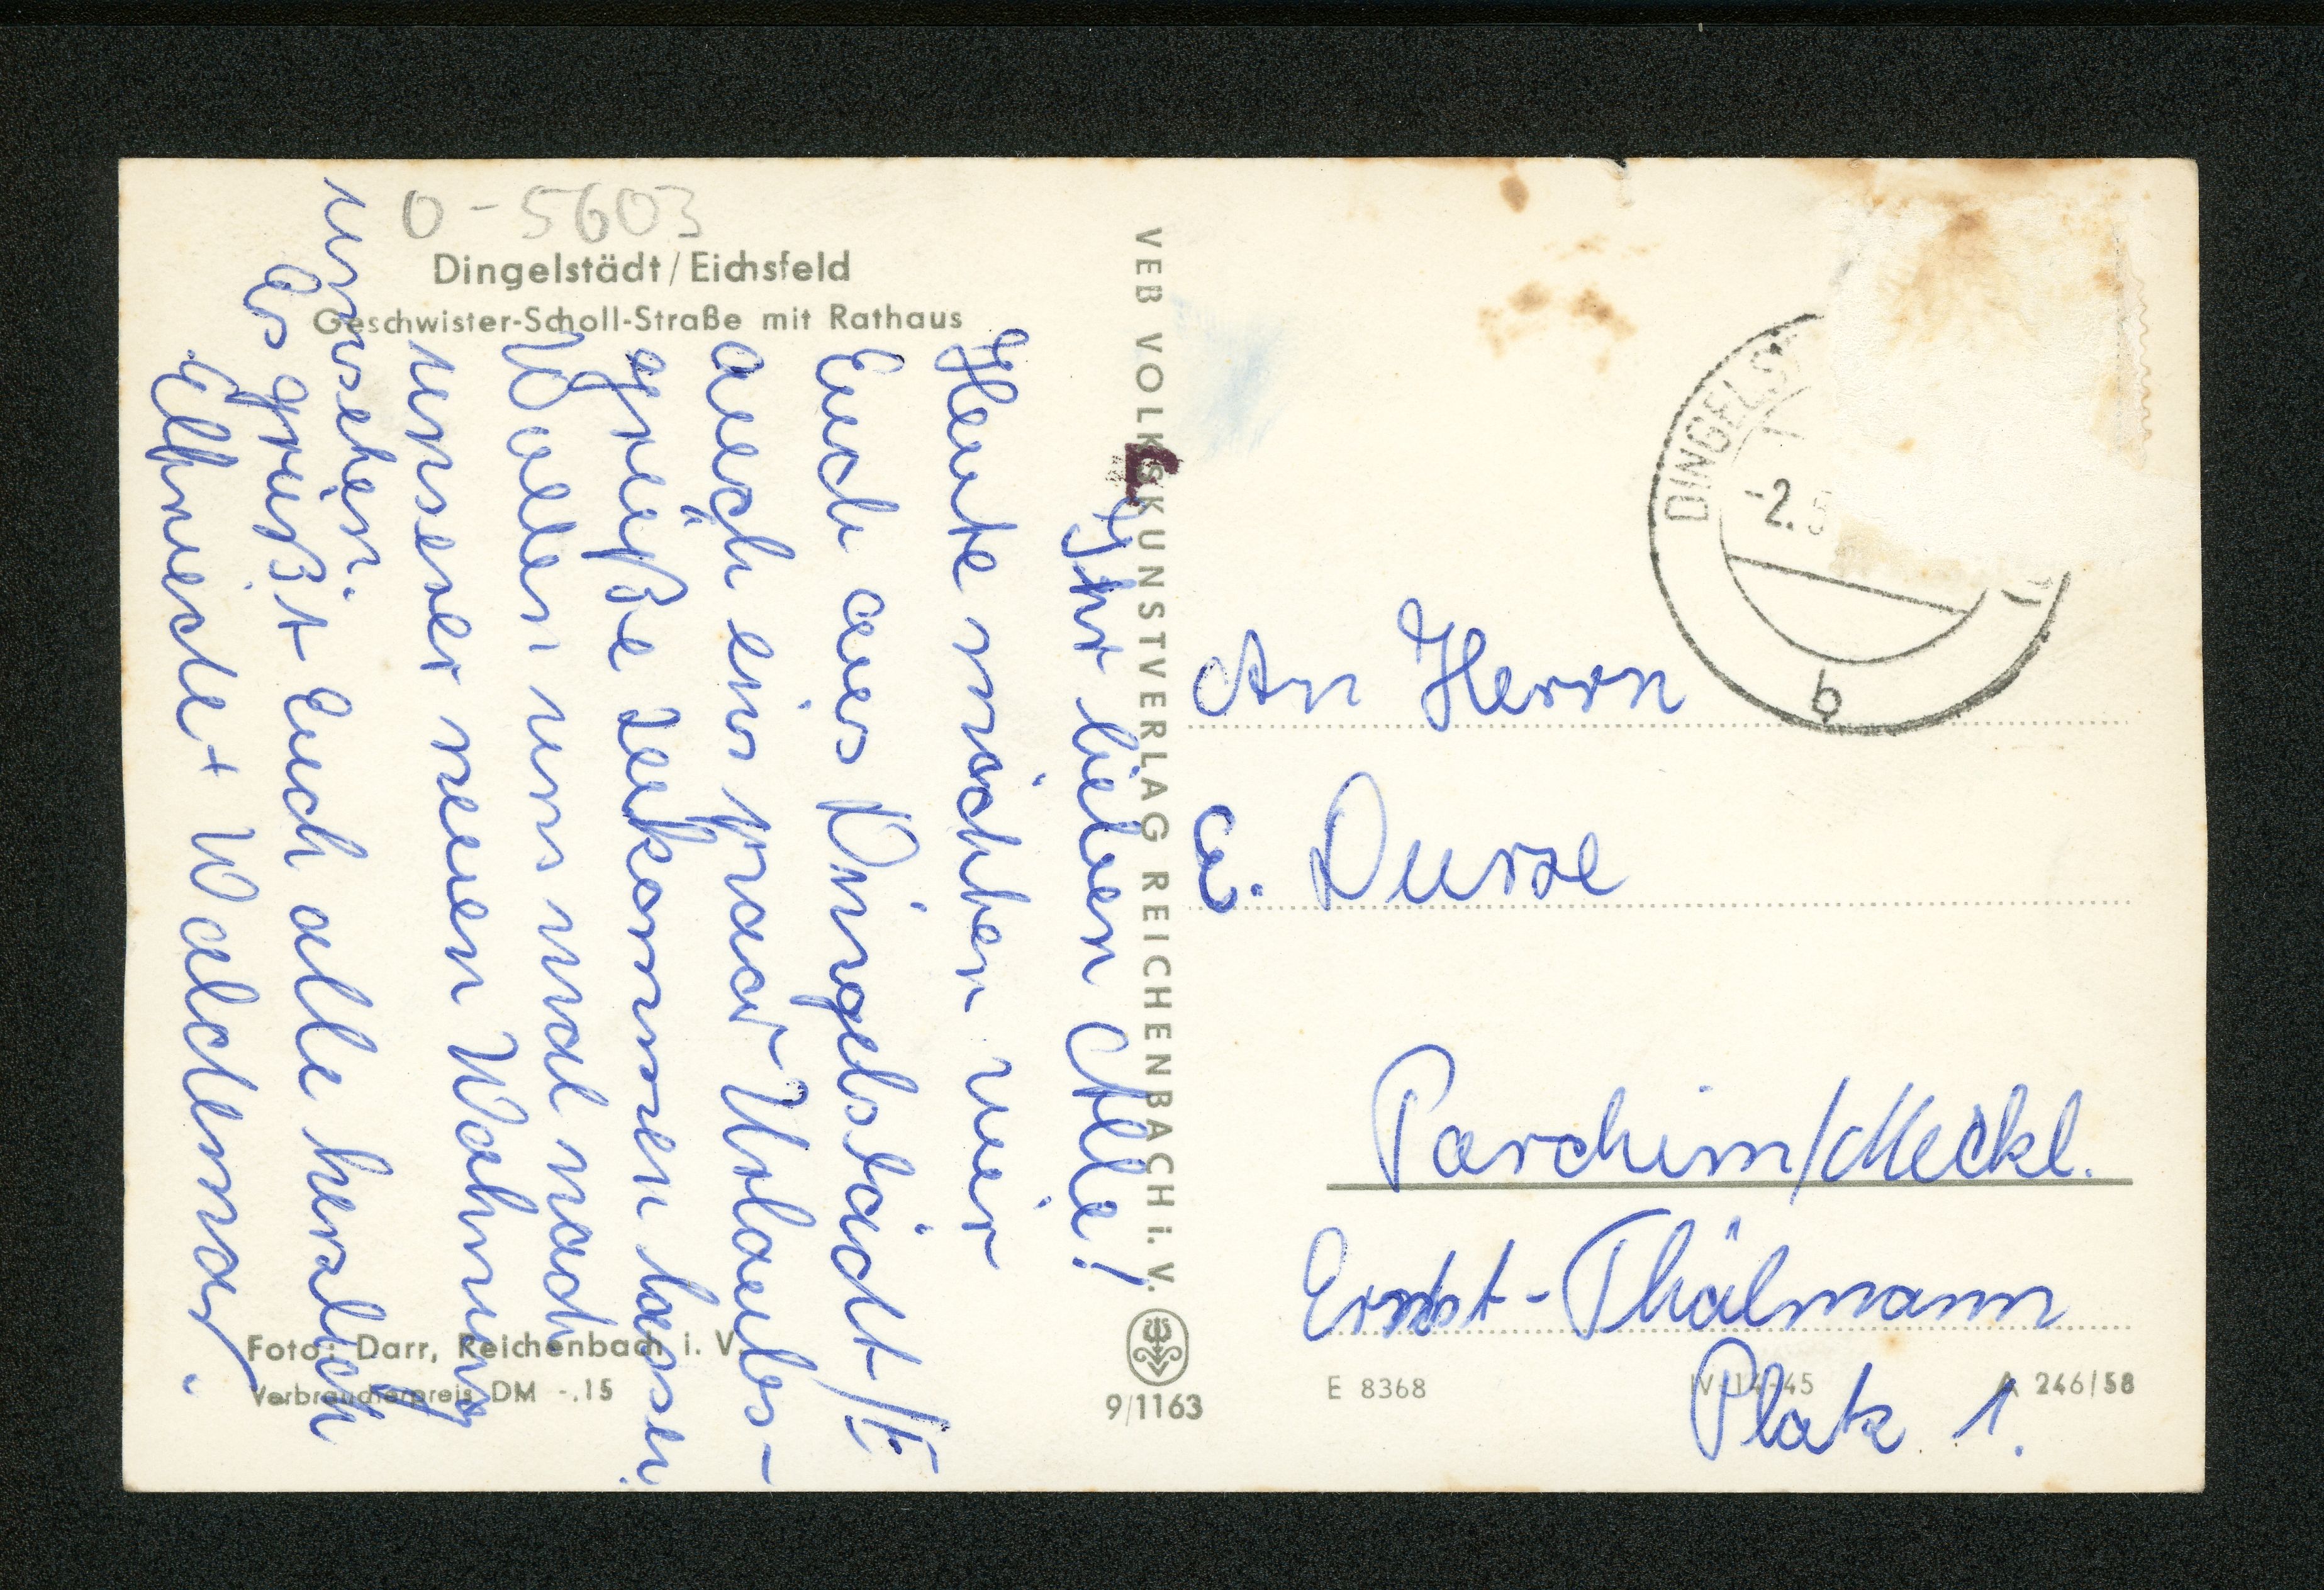 O-5603
Dingelstädt/Eichsfeld
Geschwister-Scholl-Straße mit Rathaus
Ihr lieben Alle!
Heute möchten wir
Euch aus Dingelstädt/E
auch ein paar Urlaubs-
grüße zukommen lassen
Wollen uns mal nach
unserer neuen Wohnung
umsehen.
Es grüßt Euch alle herzlich
Elfriede + Waldemar.
Foto: Darr, Reichenbach i. V.
Verbraucherpreis DM -.15
VEB VOLKSKUNSTVERLAG REICHENBACH i. V.
9/1163
DINGELS
-2.
b
An Herrn
Parchim/Meckl.
Ernst-Thälmann
Platz 1.
E 8368
A 246/58